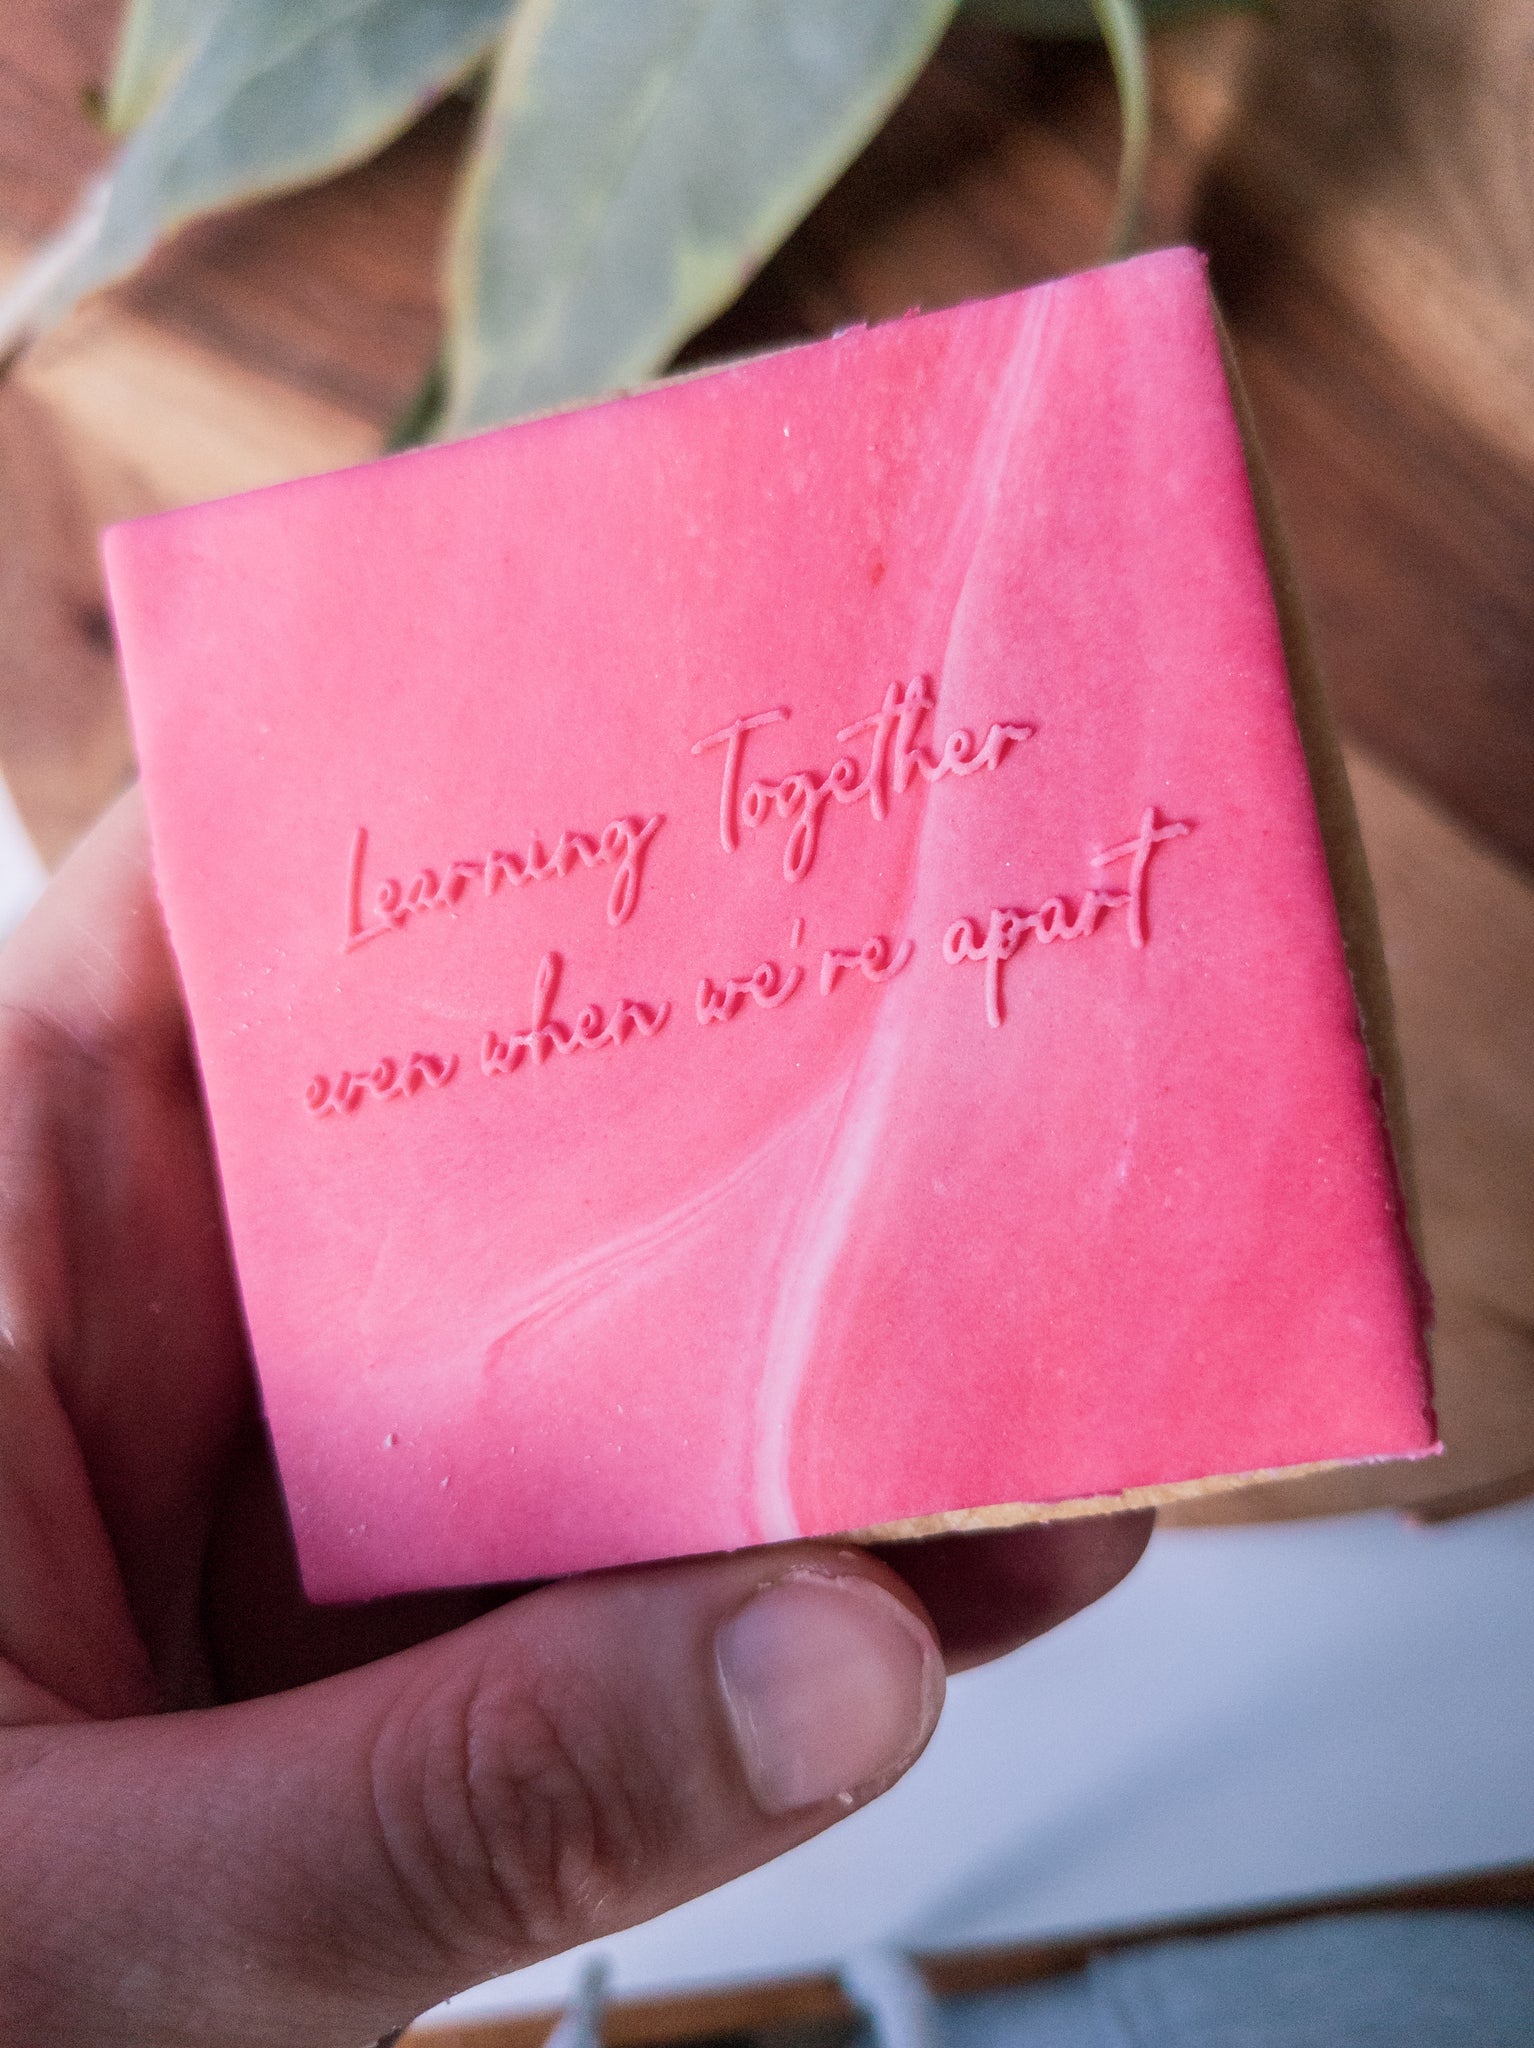 Learning Together
even when we're apart